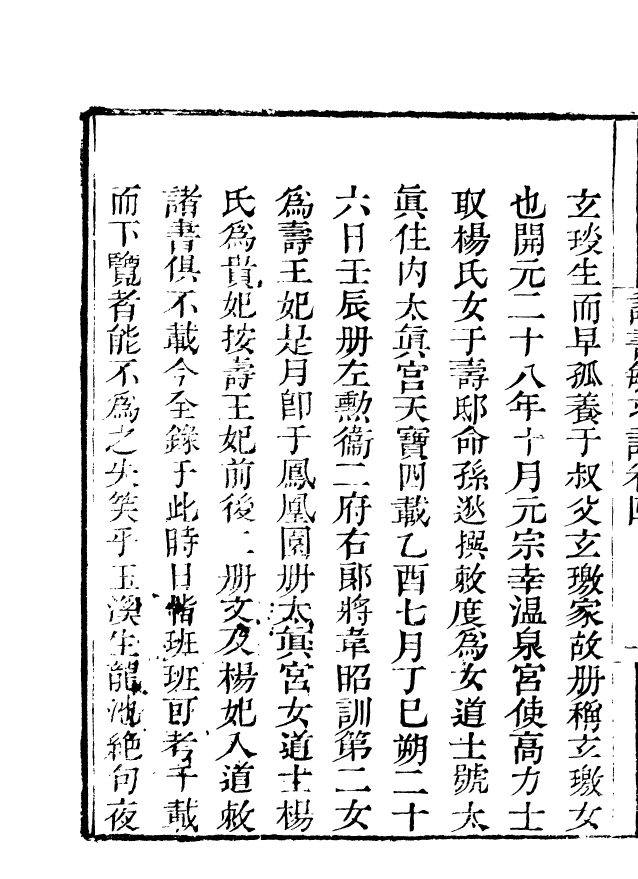 玄琰生而早孤養于叔父玄璬家故册稱玄璬女
也開元二十八年十月元宗幸温泉宮使高力士
取楊氏女于壽邸命孫逖撰敕度爲女道士號太
眞住内太眞宫天寶四載乙酉七月丁巳朔二十
六日壬辰册左勲衞二府右郎將韋昭訓第二女
爲壽王妃是月卽于鳳凰園册太眞宮女道士楊
氏爲貴妃按壽王妃前後二册文及楊妃入道敕
諸書俱不載今全錄于此時日偕班班可考千載
而下覽者能不爲之失笑乎玉溪生龍池絶句夜